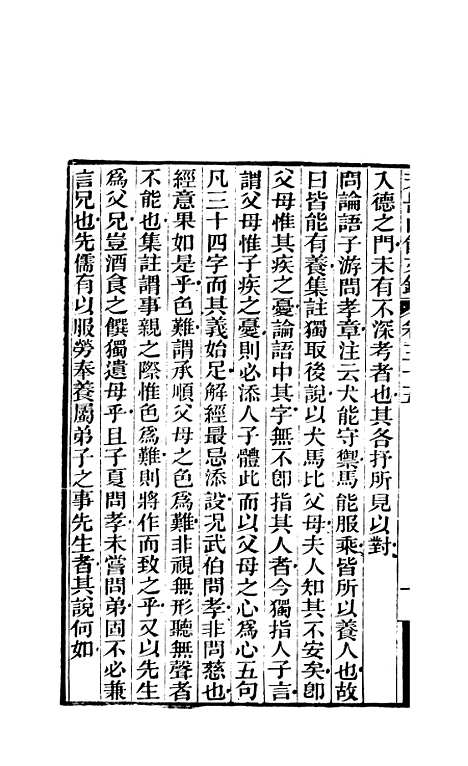 入德之門未有不深考者也其各抒所見以對
問論語子游問孝章注云犬能守禦馬能服乘皆所以養人也故
曰皆能有養集註獨取後說以犬馬比父母夫人知其不安矣卽
父母惟其疾之憂論語中其字無不卽指其人者今獨指人子言
謂父母惟子疾之憂則必添人子體此而以父母之心爲心五句
凡三十四字而其義始足解經最忌添設况武伯問孝非問慈也
經意果如是乎色難謂承順父母之色爲難非視無形聽無聲者
不能也集註謂事親之際惟色爲難則將作而致之乎又以先生
爲父兄豈酒食之饌獨遺母乎且子夏問孝未嘗問弟固不必兼
言兄也先儒有以服勞奉養屬弟子之事先生者其說何如